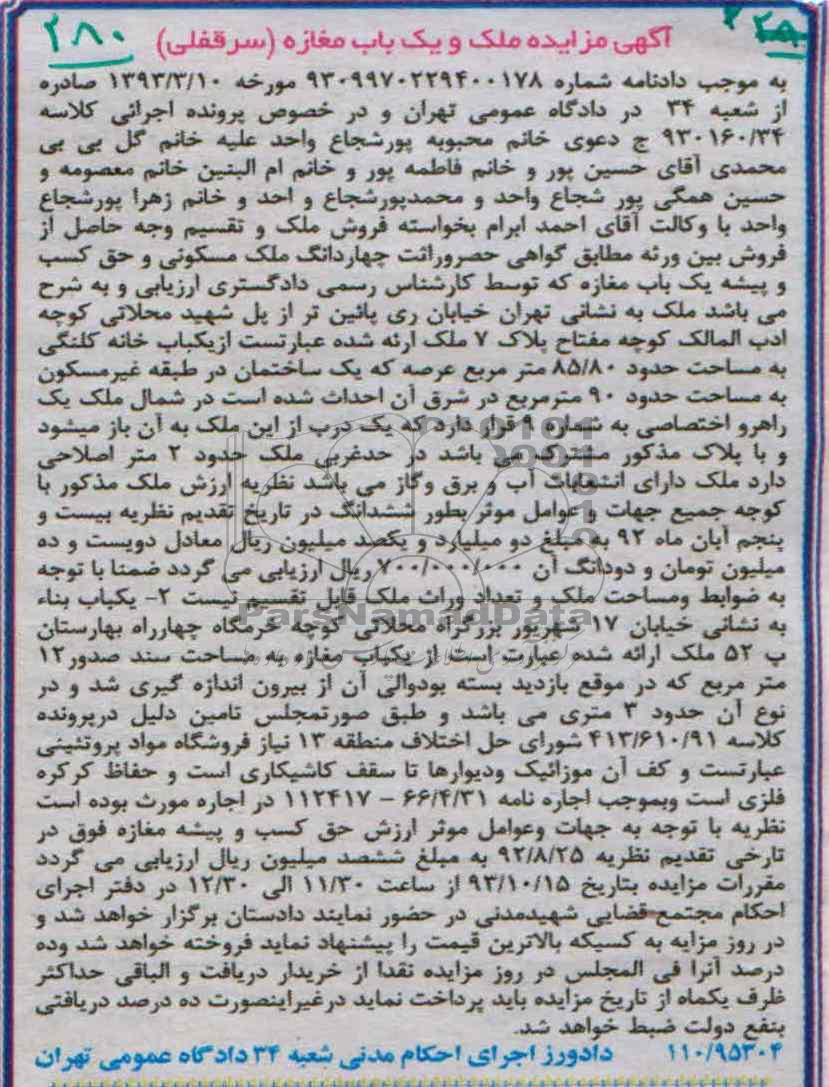 ۲۸۰
آگهی مزایده ملک و یک باب مغازه (سرقفلی)
به موجب دادنامه شماره ۹۳۰۹۹۷۰۲۲۹۴۰۰۱۷۸ مورخه ۱۳۹۳/۳/۱۰ صادره
از شعبه ۳۴ در دادگاه عمومی تهران و در خصوص پرونده اجرائی کلاسه
۹۳۰۱۶۰/۳۴ ج دعوی خانم محبوبه پورشجاع واحد علیه خانم گل بی بی
محمدی آقای حسین پور و خانم فاطمه پور و خانم ام البنین خانم معصومه و
حسین همگی پور شجاع واحد و محمدپورشجاع و احد و خانم زهرا پورشجاع
واحد با وکالت آقای احمد ابرام بخواسته فروش ملک و تقسیم وجه حاصل از
فروش بین ورثه مطابق گواهی حصروراثت چهاردانگ ملک مسکونی و حق کسب
و پیشه یک باب مغازه که توسط کارشناس رسمی دادگستری ارزیابی و به شرح
می باشد ملک به نشانی تهران خیابان ری پائین تر از پل شهید محلاتی کوچه
ادب الممالک کوچه مفتاح پلاک ۷ ملک ارئه شده عبارتست ازیکباب خانه کلنگی
به مساحت حدود ۸۵/۸۰ متر مربع عرصه که یک ساختمان در طبقه غیرمسکون
به مساحت حدود ۹۰ مترمربع در شرق آن احداث شده است در شمال ملک یک
راهرو اختصاصی به شماره ۹ قرار دارد که یک درب از این ملک به آن باز میشود
و با پلاک مذکور مشترک می باشد در حدغربی ملک حدود ۲ متر اصلاحی
دارد ملک دارای انشعابات آب و برق وگاز می باشد نظریه ارزش ملک مذکور با
کوچه جمیع جهات و عوامل موثر بطور ششدانگ در تاریخ تقدیم نظریه بیست و
پنجم آبان ماه ۹۲ به مبلغ دو میلیارد و یکصد میلیون ریال معادل دویست و ده
میلیون تومان و دودانگ آن ۷۰۰/۰۰۰/۰۰۰ ریال ارزیابی می گردد ضمنا با توجه
به ضوابط ومساحت ملک و تعداد وراث ملک قابل تقسیم نیست ۲- یکباب بناء
به نشانی خیابان ۱۷ شهریور بزرگراه محلاتی کوچه خرمگاه چهارراه بهارستان
پ ۵۲ ملک ارائه شده عبارت است از یکباب مغازه به مساحت سند صدور۱۲
متر مربع که در موقع بازدید بسته بودوالی آن از بیرون اندازه گیری شد و در
نوع آن حدود ۳ متری می باشد و طبق صورتمجلس تامین دلیل درپرونده
کلاسه ۴۱۳/۶۱۰/۹۱ شورای حل اختلاف منطقه ۱۳ نیاز فروشگاه مواد پروتئینی
عبارتست و کف آن موزائیک ودیوارها تا سقف کاشیکاری است و حفاظ کرکره
فلزی است وبموجب اجاره نامه ۶۶/۴/۳۱ – ۱۱۲۴۱۷ در اجاره مورث بوده است
نظریه با توجه به جهات وعوامل موثر ارزش حق کسب و پیشه مغازه فوق در
تارخی تقدیم نظریه ۹۲/۸/۲۵ به مبلغ ششصد میلیون ریال ارزیابی می گردد
مقررات مزایده بتاریخ ۹۳/۱۰/۱۵ از ساعت ۱۱/۳۰ الی ۱۲/۳۰ در دفتر اجرای
احکام مجتمع قضایی شهیدمدنی در حضور نمایند دادستان برگزار خواهد شد و
در روز مزایه به کسیکه بالاترین قیمت را پیشنهاد نماید فروخته خواهد شد وده
درصد آنرا فی المجلس در روز مزایده نقدا از خریدار دریافت و الباقی حداکثر
ظرف یکماه از تاریخ مزایده باید پرداخت نماید درغیراینصورت ده درصد دریافتی
بنفع دولت ضبط خواهد شد.
۱۱۰/۹۵۳۰۴ دادورز اجرای احکام مدنی شعبه ۳۴ دادگاه عمومی تهران
ParsNamadData